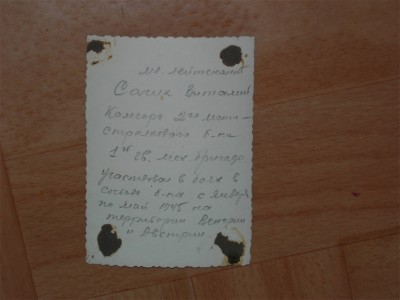 мл. лейтенант
Сочик Виталий
Комсорг 2го мото-
стрелкового б-на
1й гв. мех. бригады
участвовал в боях в
составе б-на с января
по май 1945 на
территории Венгрии
и Австрии